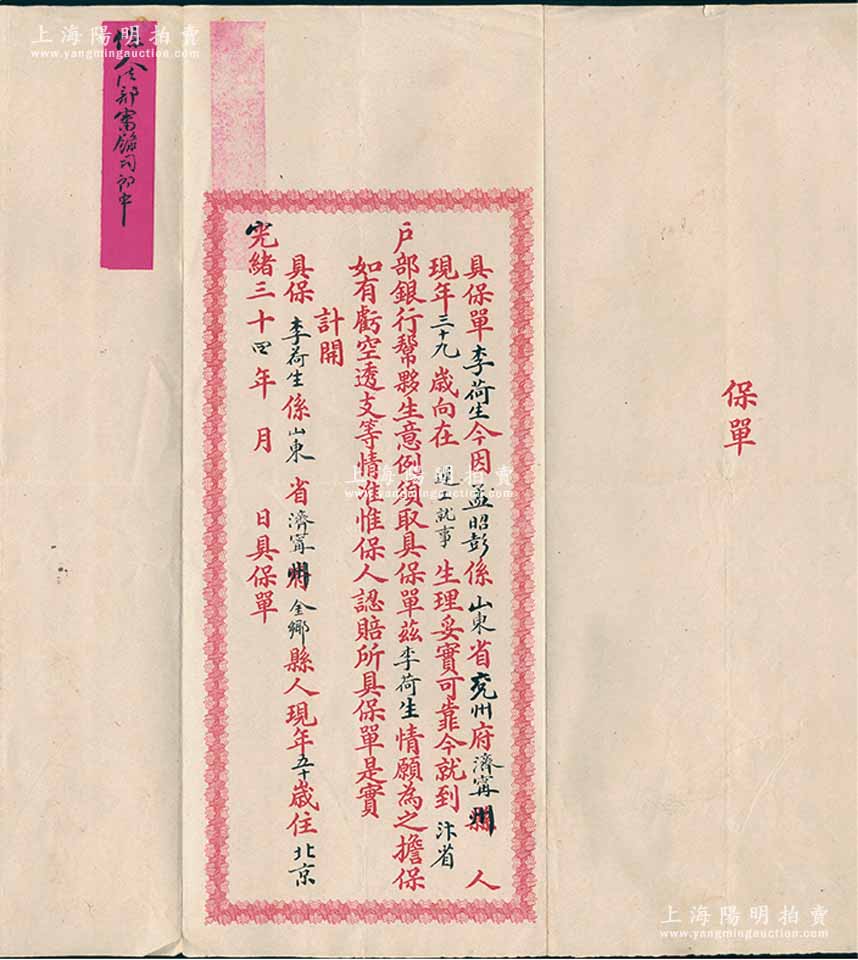 保單
具保單李荷生今因孟昭彭係山東省兗州府濟寧州人
現年三十九歲向在 就事生理妥實可靠今就到汴省
戶部銀行幫夥生意例須取具保單茲李荷生情願為之擔保
如有虧空透支等情准惟保人認賠所具保單是實
計開
具保李荷生係山東省濟寧州金鄉縣人現年五十歲住北京
光緒三十四年 月 日具保單
保人法部 司郎中
上海陽明拍賣
www.yangmingauction.com
上海陽明拍賣
www.yangmingauction.com
上海陽明拍賣
www.yangmingauction.com